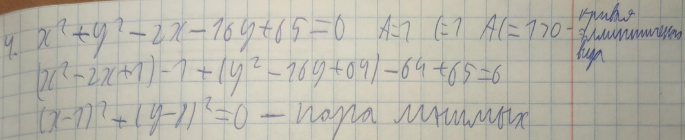 4. x² + y² - 2x - 16y + 65 = 0 A=1 C=1 AC=1>0 - кривая эллиптического вида
(x² - 2x + 1) - 1 + (y² - 16y + 64) - 64 + 65 = 0
(x-1)² + (y-8)² = 0 — пара мнимых